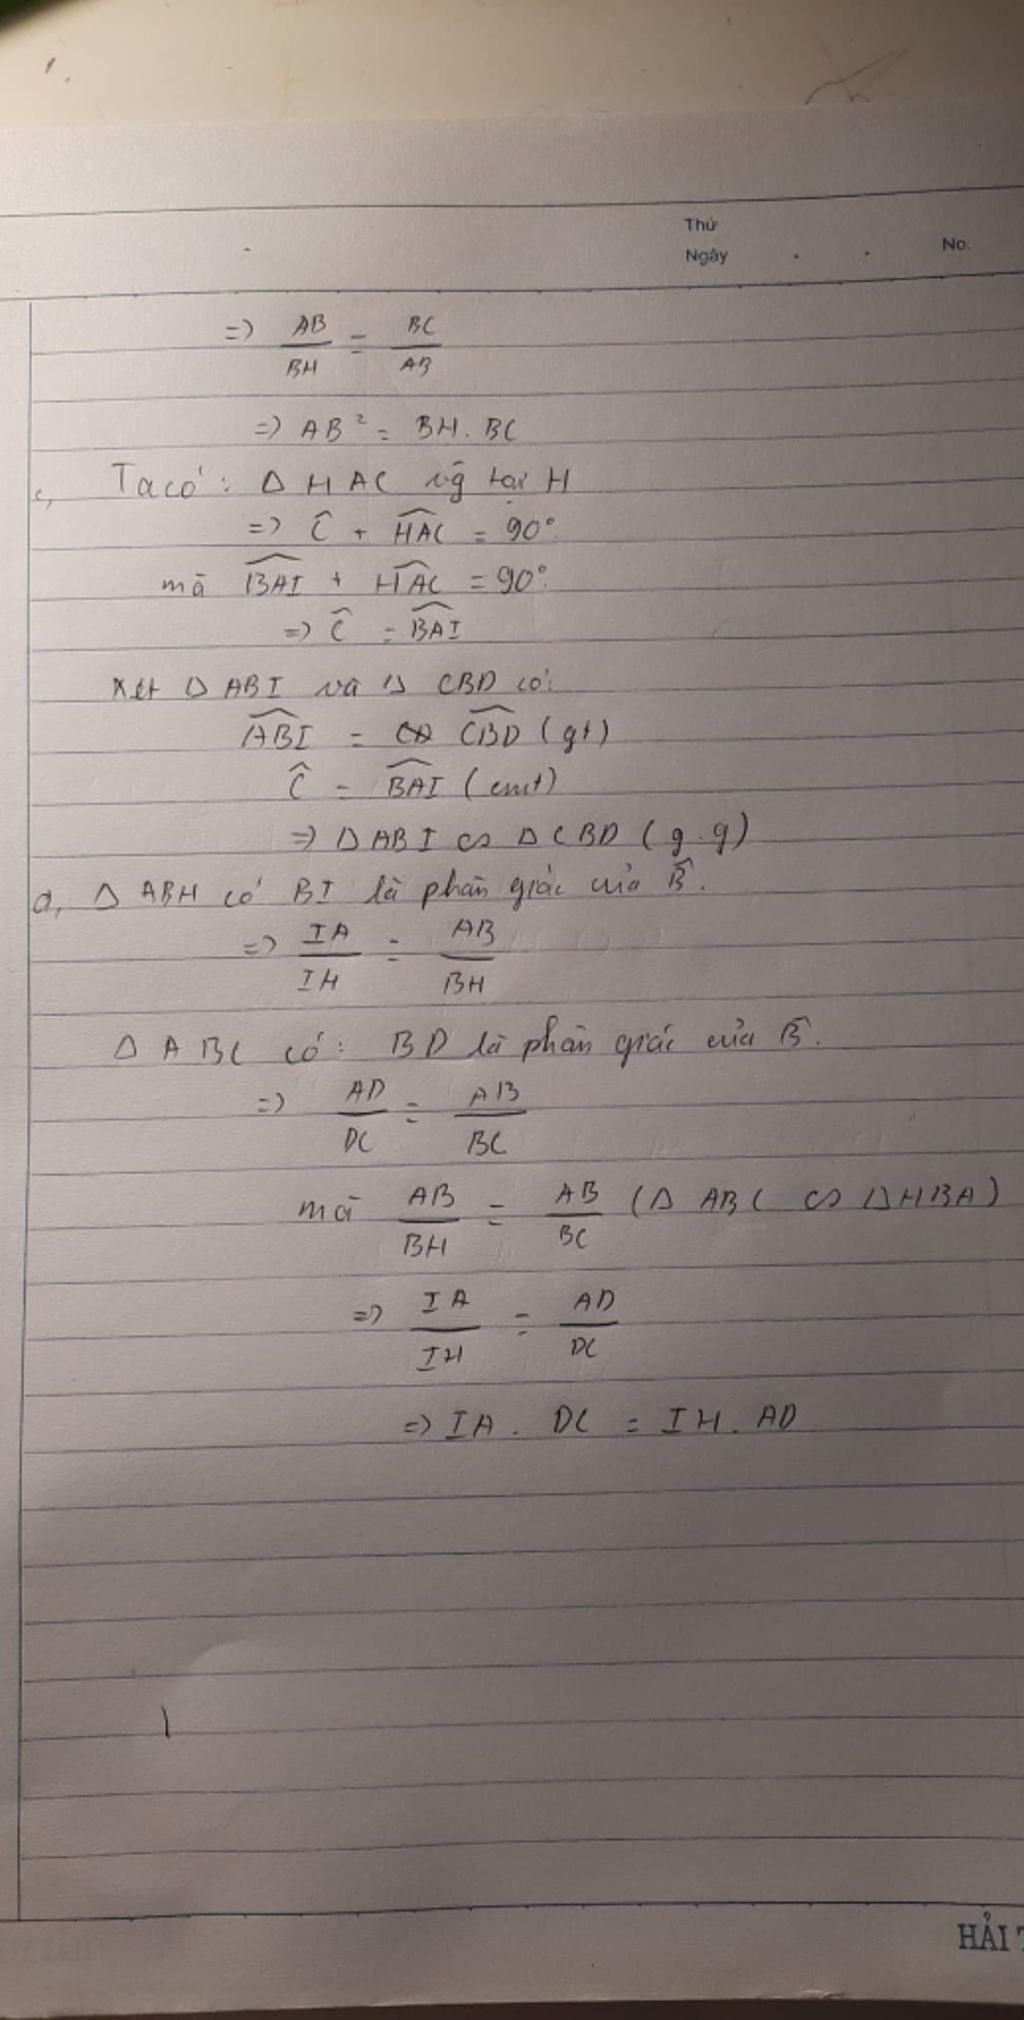 Thứ
Ngày . . No.
=> AB/BH = BC/AB
=> AB² = BH. BC
c, Ta có: Δ HAC vg tại H
=> Ĉ + \widehat{HAC} = 90°
mà \widehat{BAI} + \widehat{HAC} = 90°
=> Ĉ = \widehat{BAI}
Xét Δ ABI và Δ CBD có:
\widehat{ABI} = \widehat{CBD} (gt)
Ĉ = \widehat{BAI} (cmt)
=> Δ ABI ∽ Δ CBD (g.g)
d, Δ ABH có BI là phân giác của B̂.
=> IA/IH = AB/BH
Δ ABC có: BD là phân giác của B̂.
=> AD/DC = AB/BC
mà AB/BH = AB/BC (Δ ABC ∽ Δ HBA)
=> IA/IH = AD/DC
=> IA . DC = IH. AD
HẢI